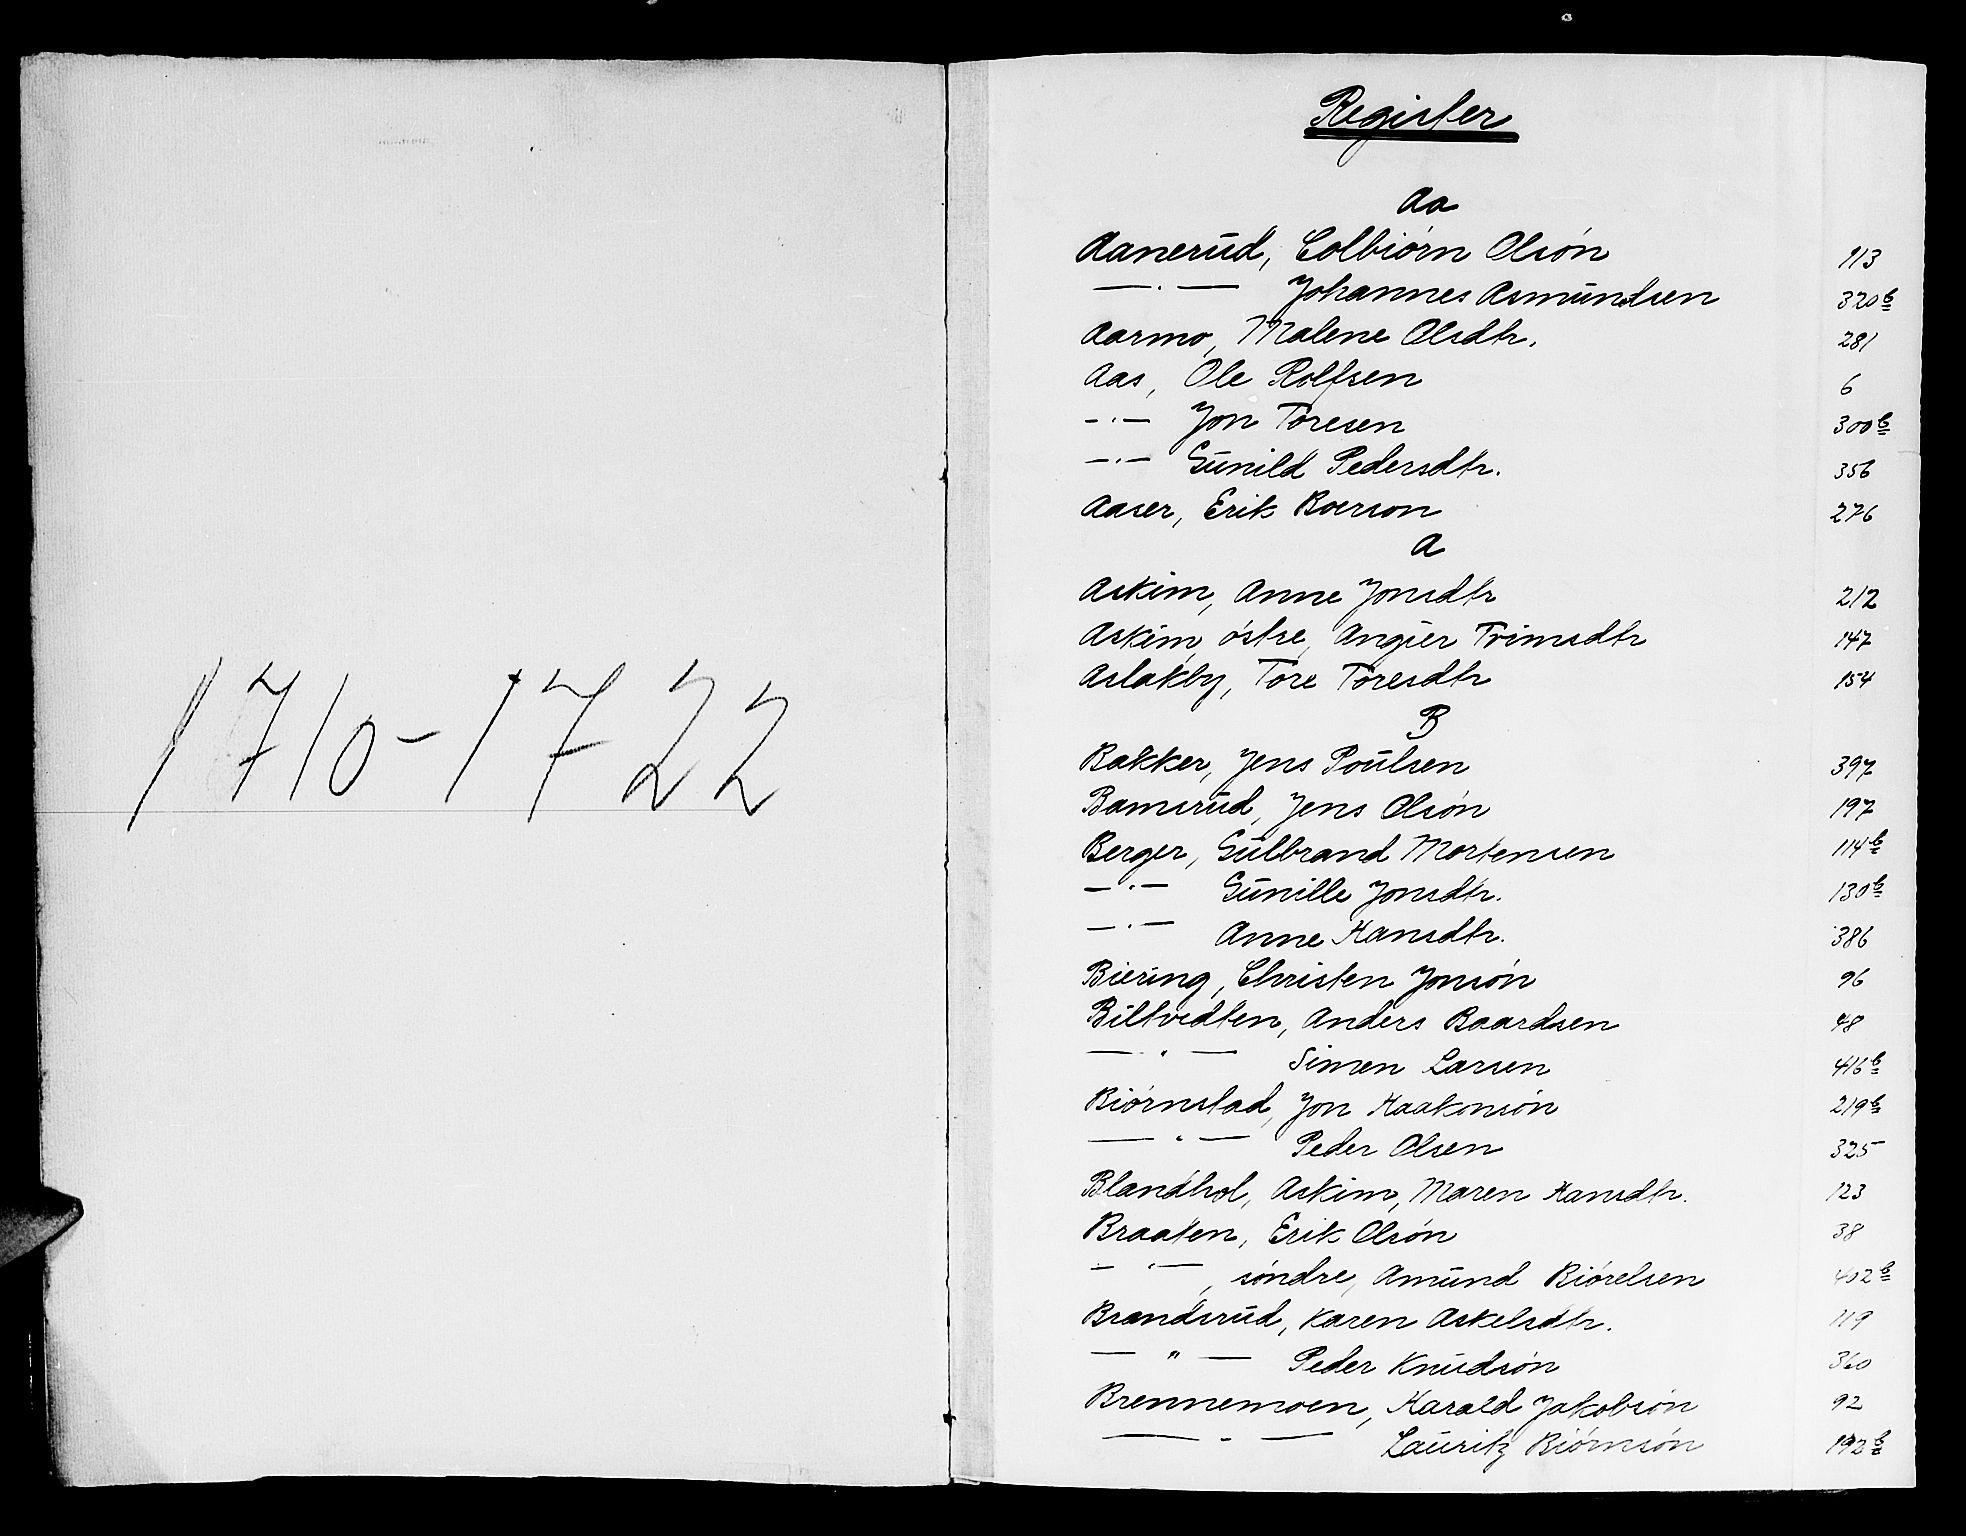 1710-1722
Register
Aa
Aanerud, Colbiörn Olsön 113
— . — Johannes Asmundsen 320b
Aarmo, Malene Olsdtr. 281
Aas, Ole Rolfsen 6
— . — Jon Toresen 300b
— . — Gunild Pedersdtr. 356
Aaser, Erik Boerson 276
A
Askim, Anne Jonsdtr 212
Askim, östre, Angier Trimsdtr 147
Aslakby, Tore Toresdtr 154
B
Bakker, Jens Poulsen 397
Bamsrud, Jens Olsön 197
Berger, Gulbrand Mortensen 114b
— . — Gunille Jonsdtr. 130b
— . — Anne Hansdtr. 386
Biering, Christen Jonsön 96
Biltvedten, Anders Baardsen 48
— " — Simen Larsen 416b
Biörnstad, Jon Haakonsön 219b
— " — Peder Olsen 325
Blandhol, Askim, Maren Hansdtr. 123
Braaten, Erik Olsön 38
— " — , söndre, Amund Biörelsen 402b
Brandsrud, Karen Askelsdtr. 119
— " — Peder Knudsön 360
Brennemoen, Harald Jakobsön 92
— " — Lauritz Biörnsön 192b